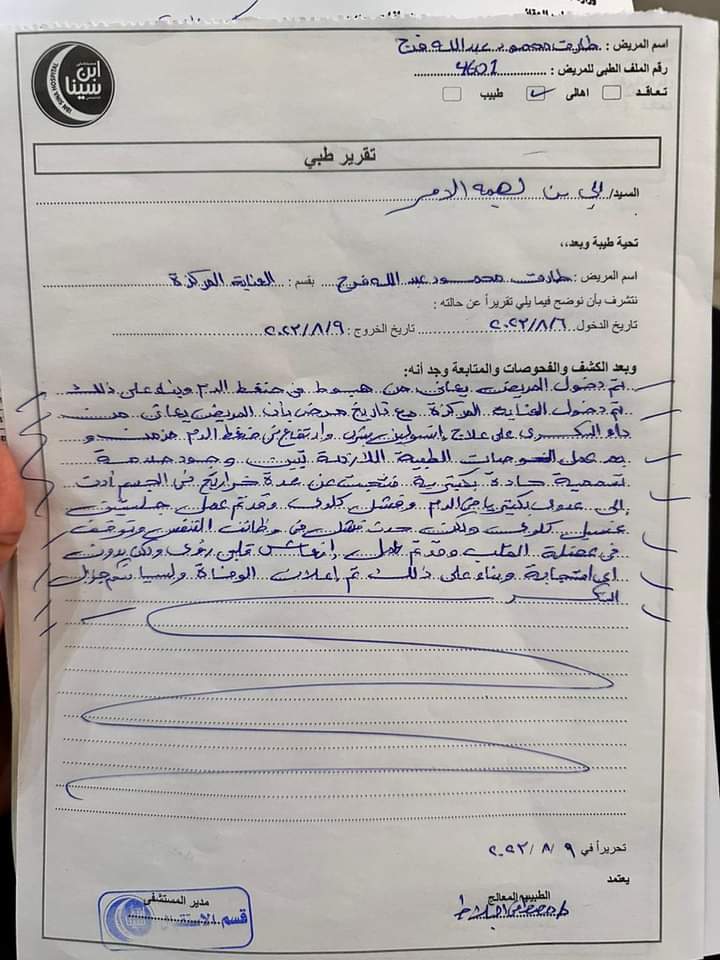 ابن سينا
IBN SINA HOSPITAL
اسم المريض : طارق محمود عبد الله فرج
رقم الملف الطبى للمريض : 4621
تعاقد اهالى طبيب
تقرير طبي
السيد/ إلي من يهمه الأمر
تحية طيبة وبعد،،
اسم المريض : طارق محمود عبد الله فرج بقسم : العناية المركزة
نتشرف بأن نوضح فيما يلي تقريراً عن حالته :
تاريخ الدخول ٢٠٢٢/٨/٦ تاريخ الخروج : ٢٠٢٢/٨/٩
وبعد الكشف والفحوصات والمتابعة وجد أنه:
تم دخول المريض يعانى من هبوط في ضغط الدم وبناء على ذلك
تم دخول العناية المركزة مع تاريخ مرضى بأن المريض يعانى من
داء السكرى على علاج إنسولين وارتفاع في ضغط الدم مزمن و
بعد عمل الفحوصات الطبية اللازمة تبين وجود صدمة
تسممية حادة بكتيرية نتجت عن عدة خراريج في الجسم أدت
إلى عدوى بكتيريا في الدم وفشل كلوى وقد تم عمل جلستين
غسيل كلوى ولكن حدث فشل في وظائف التنفس وتوقف
في عضلة القلب وقد تم عمل إنعاش قلبى رئوى ولكن بدون
اى استجابة وبناء على ذلك تم إعلان الوفاة ولسيادتكم جزيل
الشكر
تحريراً في ٢٠٢٢/٨/٩
يعتمد
الطبيب المعالج مدير المستشفى
قسم الاستقبال